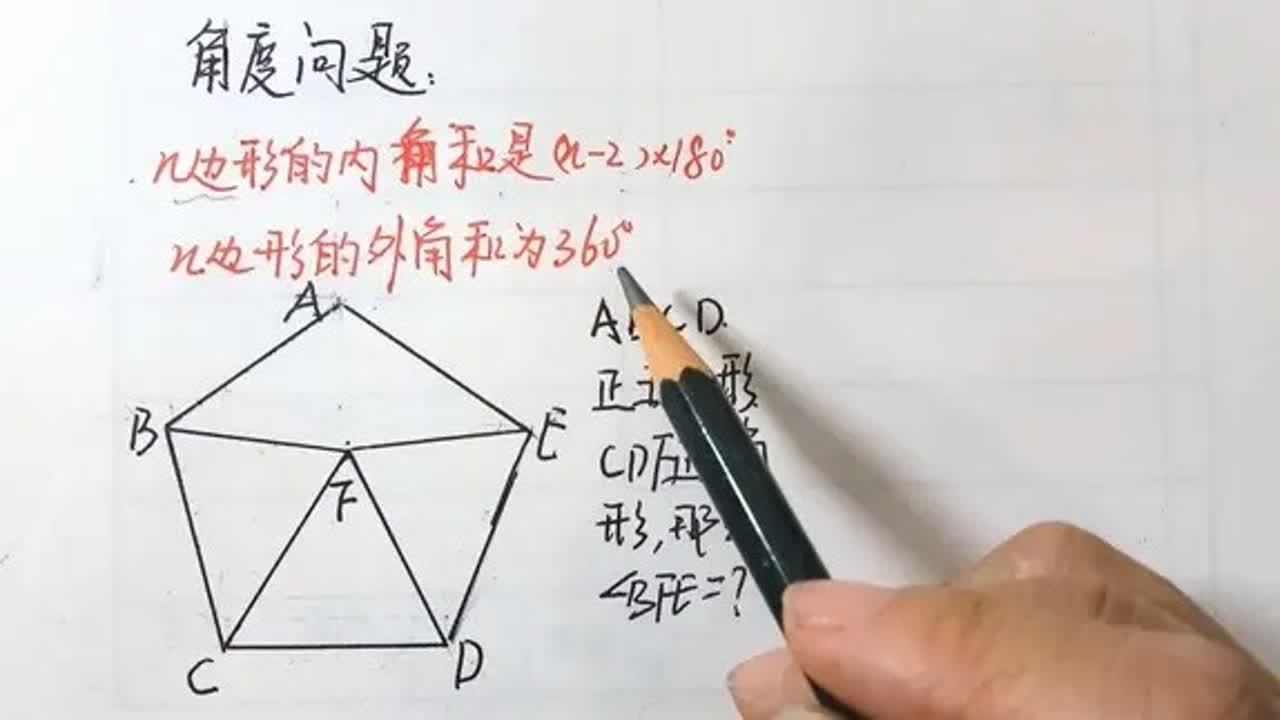 角度问题:
n边形的内角和是(n-2)×180°
n边形的外角和为360°
A
B
E
F
C
D
A CD
正 形
CDF正
形,那
∠BFE=?